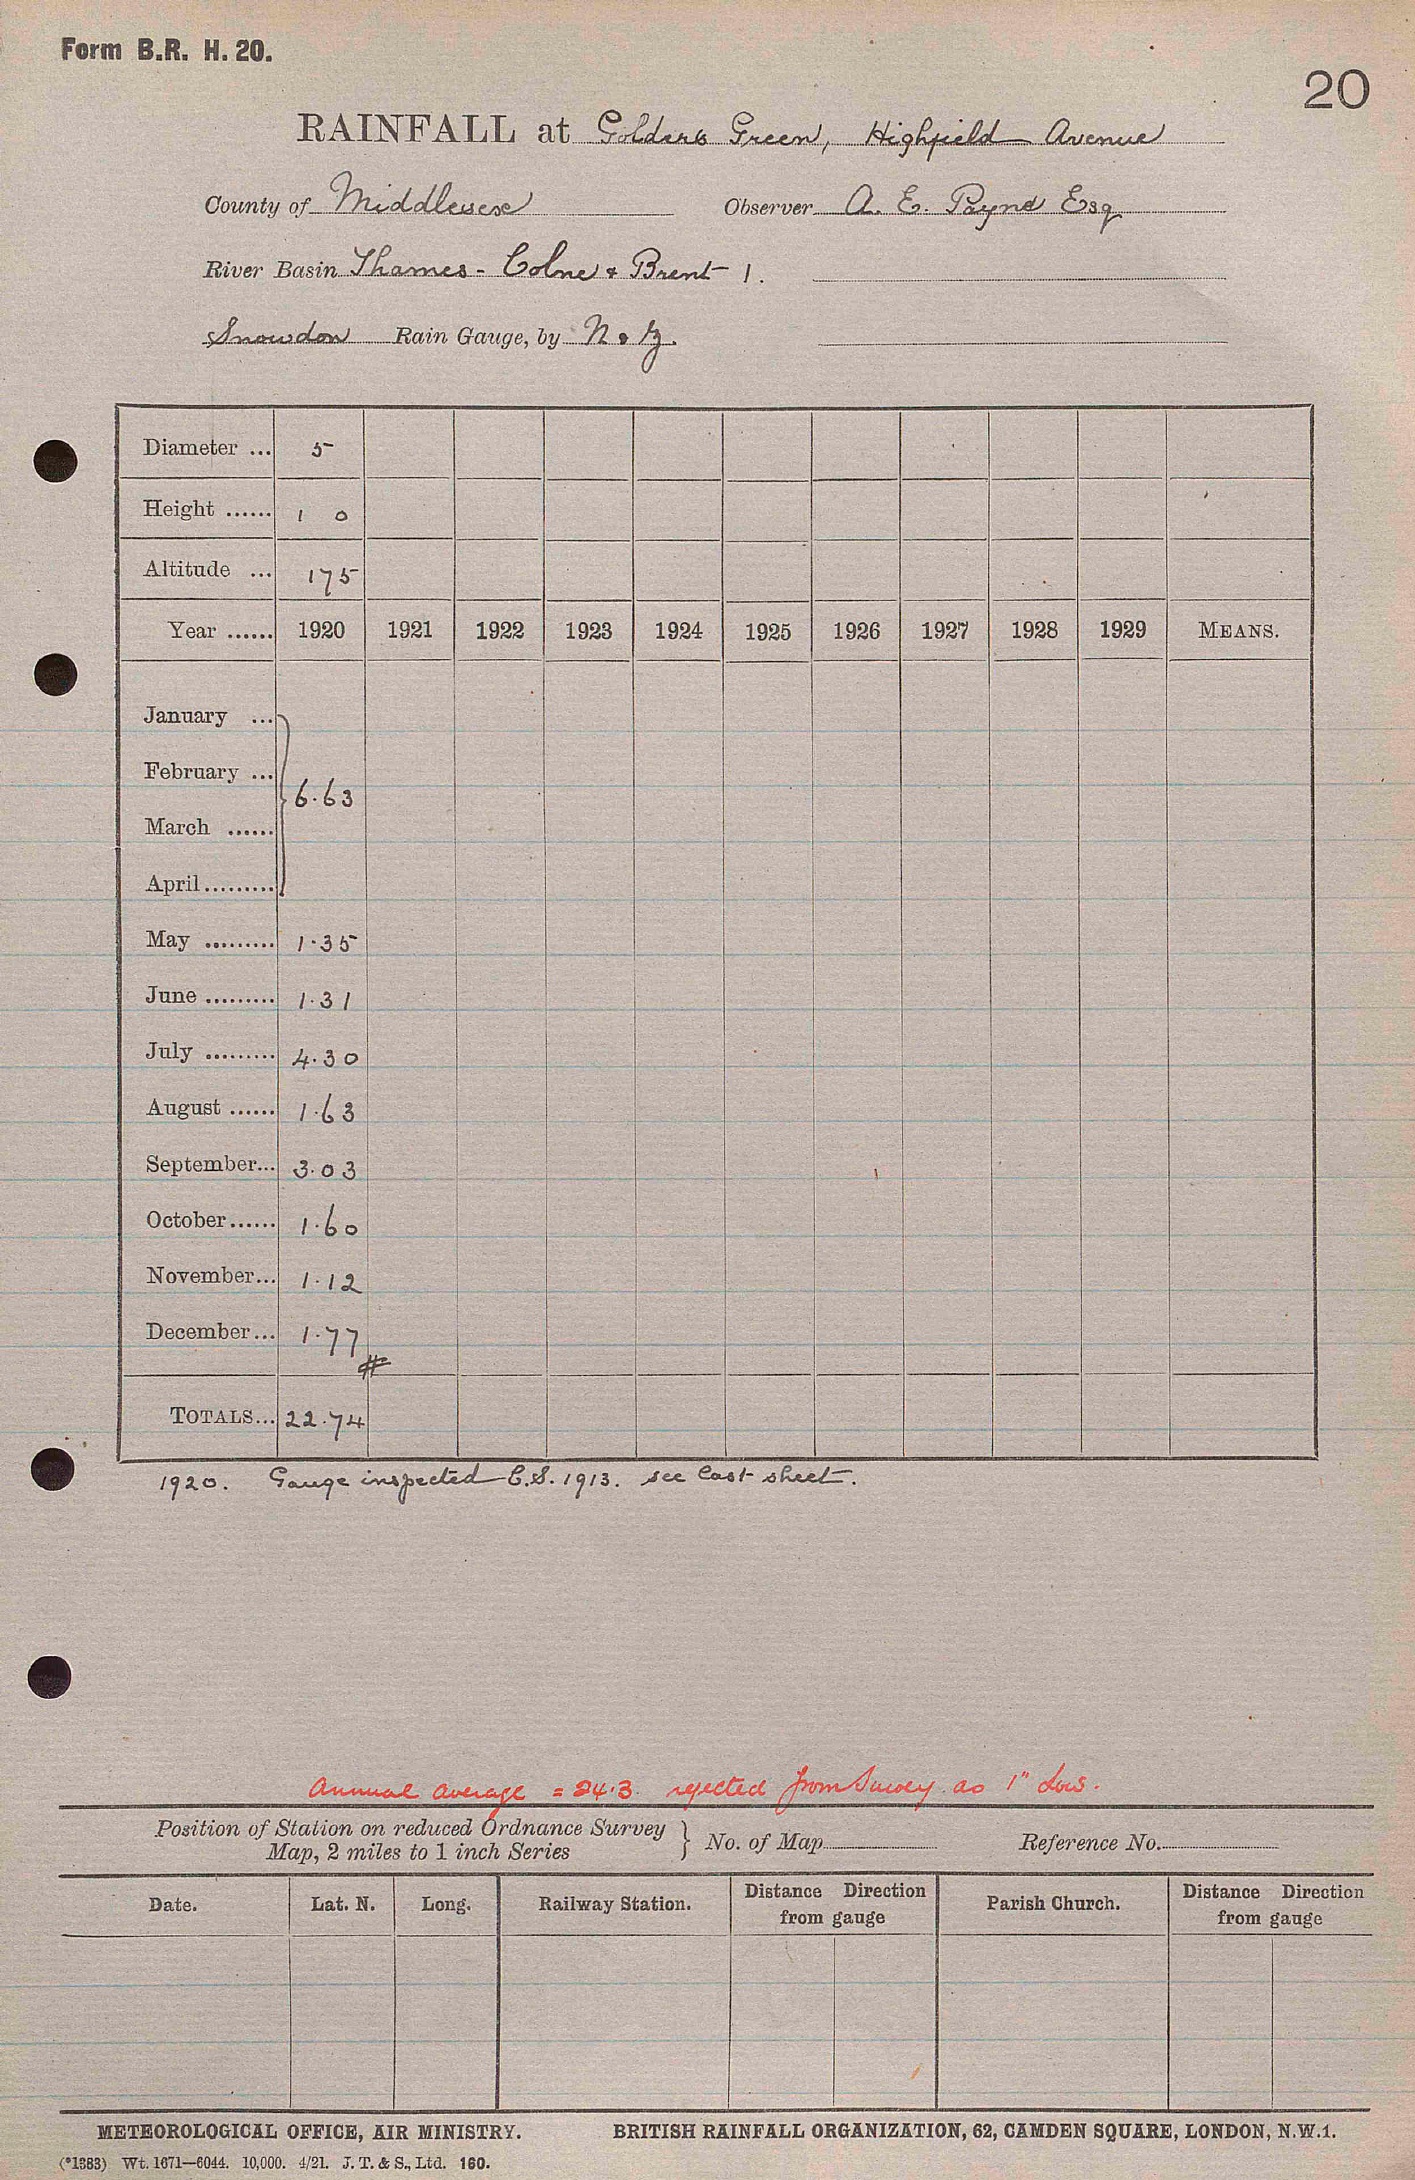 Form B.R. H. 20.
20
RAINFALL at Golders Green, Highfield Avenue
County of Middlesex Observer A. E. Payne Esq
River Basin Thames - Colne & Brent 1.
Snowdon Rain Gauge, by N & Z.
Diameter ... 5
Height ...... 1 0
Altitude ... 175
Year ...... 1920 1921 1922 1923 1924 1925 1926 1927 1928 1929 MEANS.
January ...
February ...
6.63
March ......
April.........
May ......... 1.35
June ......... 1.31
July ......... 4.30
August ...... 1.63
September... 3.03
October...... 1.60
November... 1.12
December... 1.77
#
TOTALS... 22.74
1920. Gauge inspected C.S. 1913. see last sheet.
Annual average = 24.3 rejected from Survey as 1" low.
Position of Station on reduced Ordnance Survey } No. of Map Reference No.
Map, 2 miles to 1 inch Series
Date. Lat. N. Long. Railway Station. Distance Direction from gauge Parish Church. Distance Direction from gauge
METEOROLOGICAL OFFICE, AIR MINISTRY. BRITISH RAINFALL ORGANIZATION, 62, CAMDEN SQUARE, LONDON, N.W.1.
(*1383) Wt. 1671—6044. 10,000. 4/21. J. T. & S., Ltd. 160.